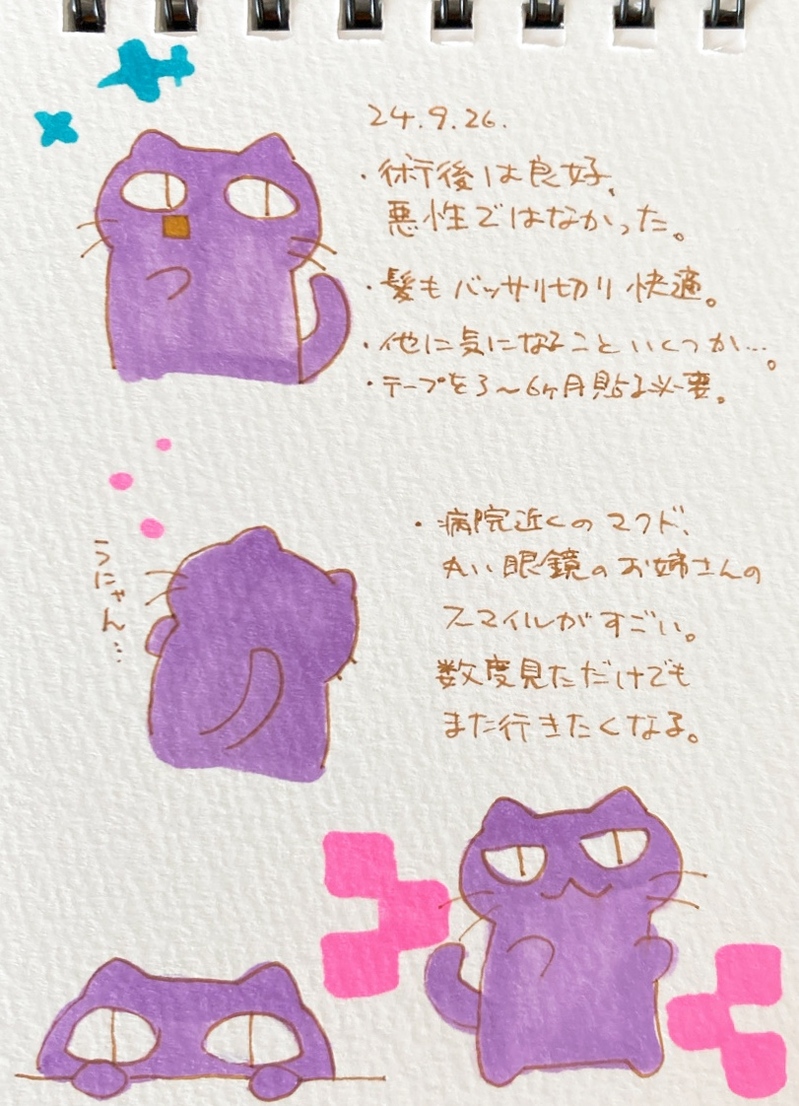 24.9.26.
・術後は良好、
悪性ではなかった。
・髪もバッサリ切り快適。
・他に気になることいくつか…。
・テープを3〜6ヶ月貼る必要。
うにゃん…
・病院近くのマクド、
丸い眼鏡のお姉さんの
スマイルがすごい。
数度見ただけでも
また行きたくなる。